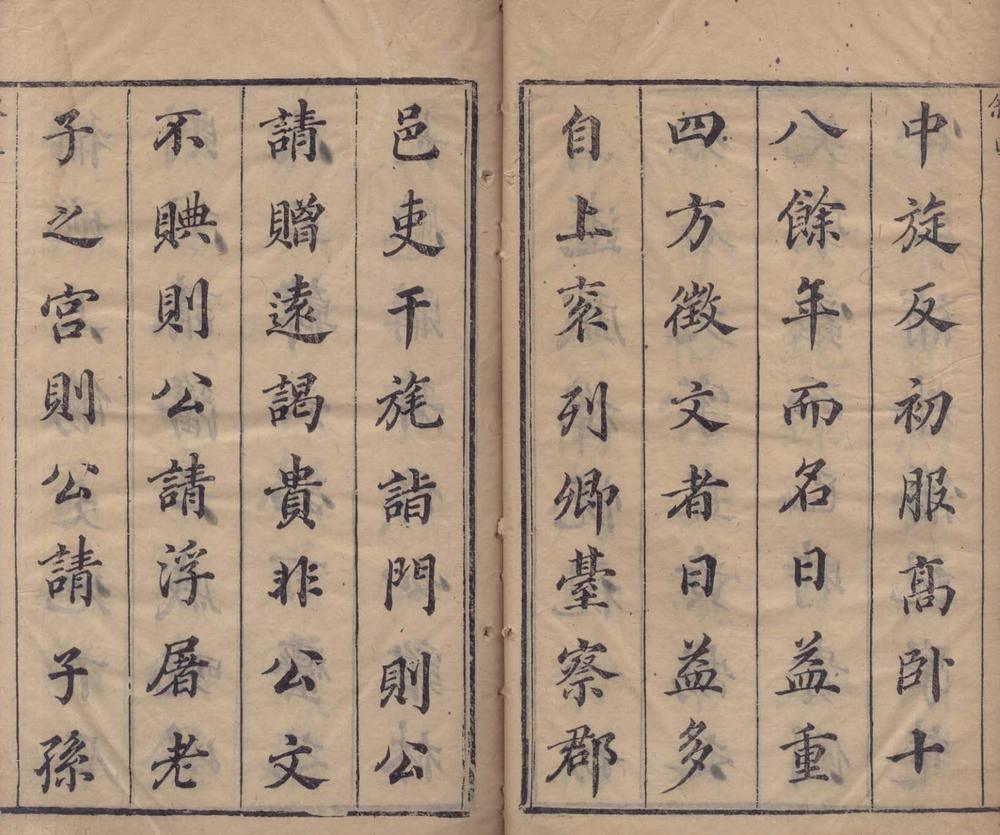 中旋反初服高卧十
八餘年而名日益重
四方徵文者日益多
自上衮列卿臺察郡
邑吏干旄詣門則公
請贈遠謁貴非公文
不賟則公請浮屠老
子之宮則公請子孫